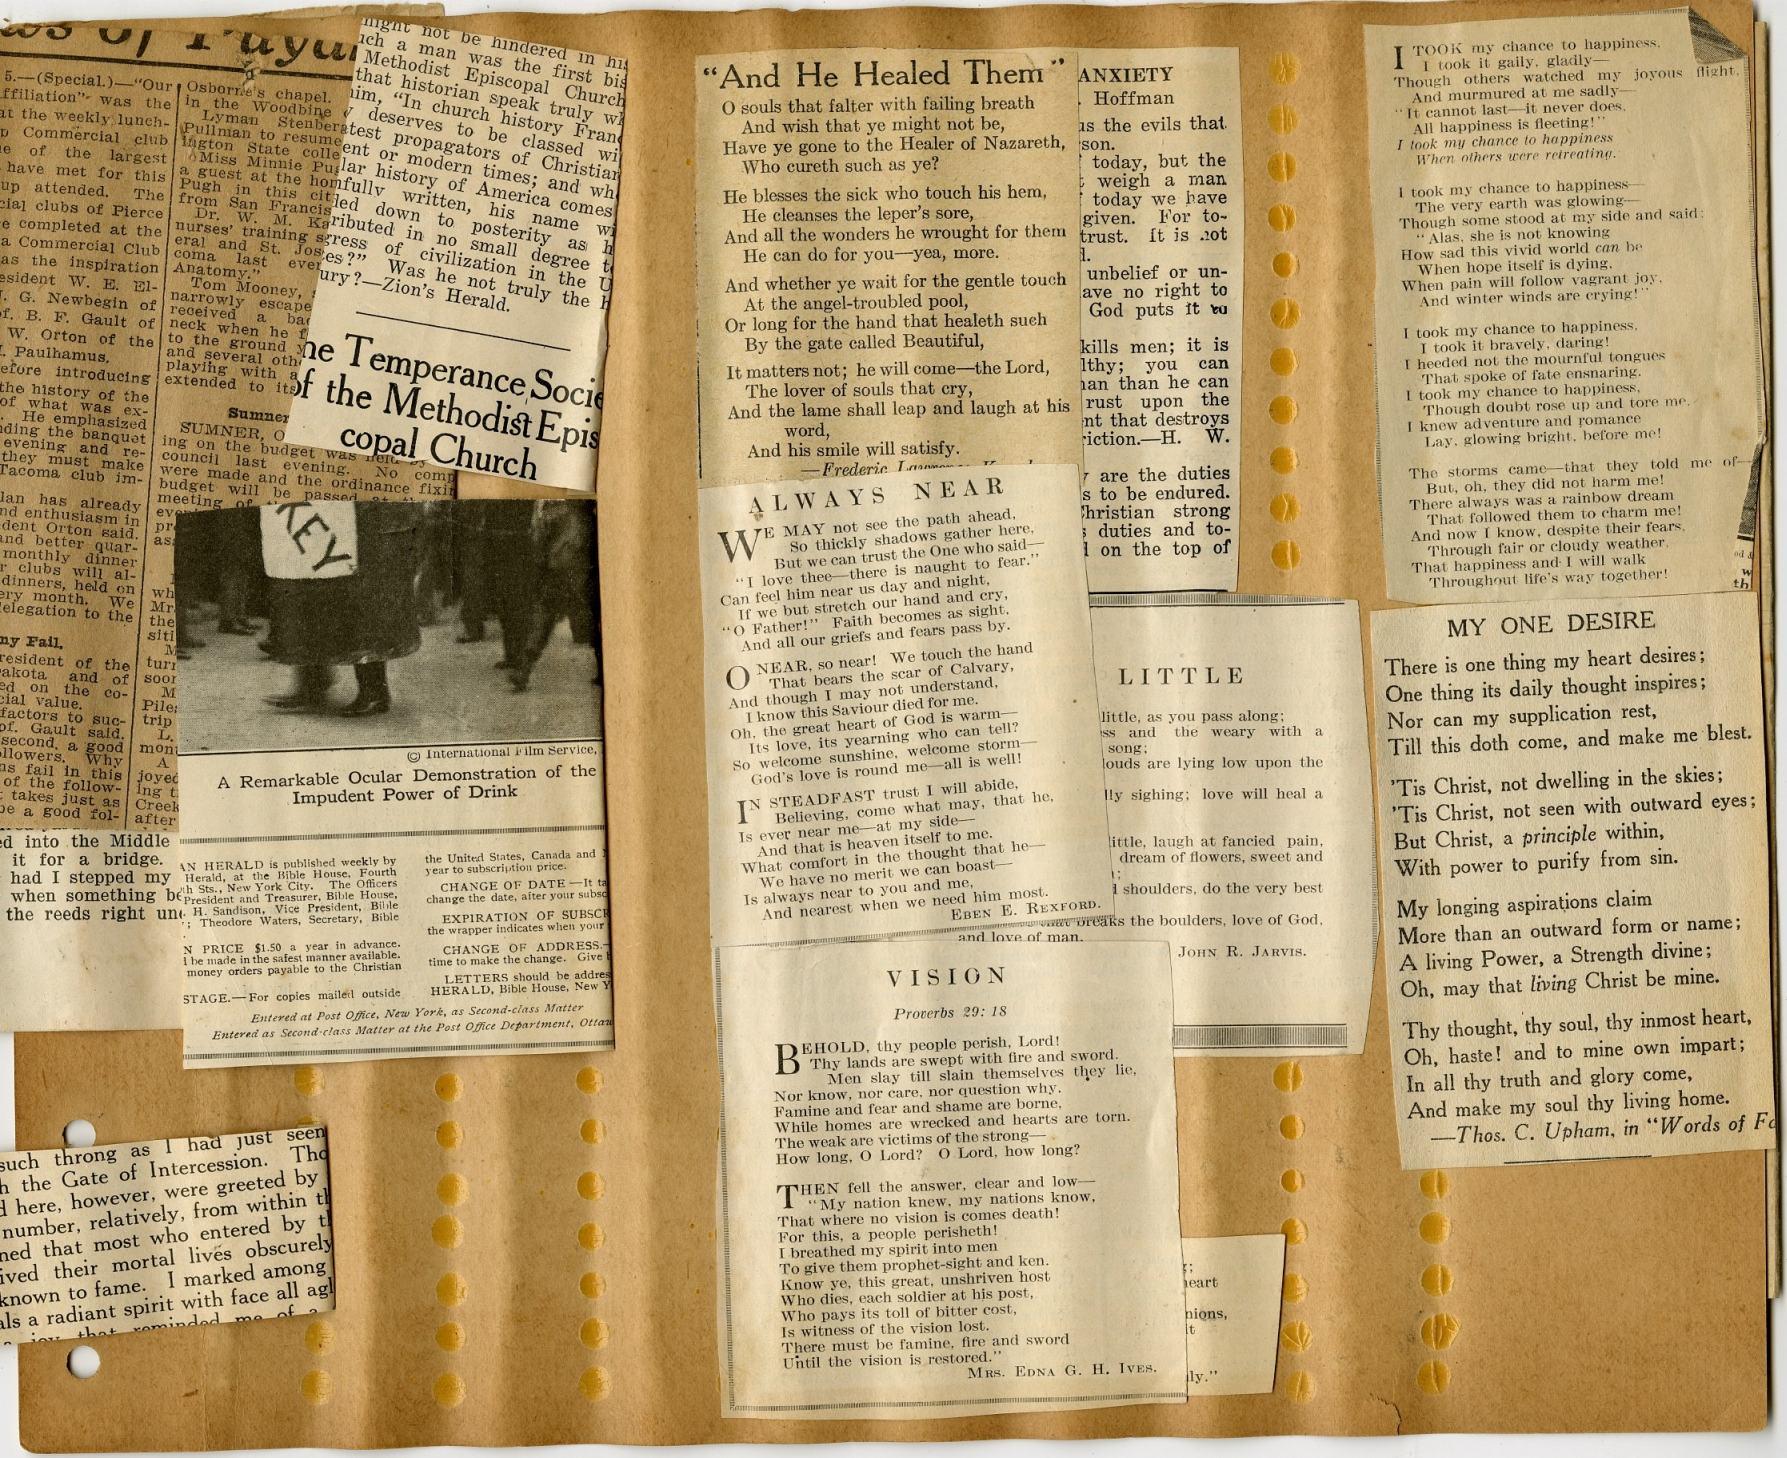 5.—(Special.)—"Our
ffiliation" was the
at the weekly lunch-
p Commercial club
e of the largest
have met for this
up attended. The
cial clubs of Pierce
e completed at the
a Commercial Club
as the inspiration
esident W. E. El-
. G. Newbegin of
of. B. F. Gault of
W. Orton of the
. Paulhamus.
efore introducing
the history of the
of what was ex-
. He emphasized
nding the banquet
evening and re-
they must make
Tacoma club im-
lan has already
nd enthusiasm in
dent Orton said.
and better quar-
monthly dinner
r clubs will al-
dinners, held on
ery month. We
delegation to the
ny Fail.
resident of the
akota and of
ed on the co-
cial value.
factors to suc-
of. Gault said.
second, a good
ollowers. Why
ns fail in this
of the follow-
t takes just as
be a good fol-
Osborne's chapel.
in the Woodbine
Lyman Stenber
Pullman to resume
ington State colle
Miss Minnie Pu
a guest at the hom
Pugh in this cit
from San Francis
Dr. W. M. Ka
nurses' training s
eral and St. Jos
coma last eve
Anatomy."
Tom Mooney,
narrowly escape
received a ba
neck when he f
to the ground
and several oth
playing with a
extended to its
Sumner
SUMNER, O
ing on the budget was held by
council last evening. No comp
were made and the ordinance fixin
budget will be passed at the
meeting of
ed into the Middle
it for a bridge.
had I stepped my
when something be
the reeds right un
might not be hindered in his
uch a man was the first bis
Methodist Episcopal Church
that historian speak truly w
him, "In church history Fran
deserves to be classed wi
test propagators of Christian
ent or modern times; and wh
lar history of America comes
nfully written, his name wi
led down to posterity as h
ributed in no small degree t
gress of civilization in the U
es?" Was he not truly the
ury?—Zion's Herald.
he Temperance Socie
of the Methodist Epis
copal Church
KEY
© International Film Service,
A Remarkable Ocular Demonstration of the
Impudent Power of Drink
AN HERALD is published weekly by
Herald, at the Bible House, Fourth
th Sts., New York City. The Officers
President and Treasurer, Bible House,
. H. Sandison, Vice President, Bible
; Theodore Waters, Secretary, Bible
N PRICE $1.50 a year in advance.
l be made in the safest manner available.
money orders payable to the Christian
STAGE.—For copies mailed outside
the United States, Canada and
year to subscription price.
CHANGE OF DATE—It ta
change the date, after your subsc
EXPIRATION OF SUBSCR
the wrapper indicates when your
CHANGE OF ADDRESS.—
time to make the change. Give
LETTERS should be addre
HERALD, Bible House, New Y
Entered at Post Office, New York, as Second-class Matter
Entered as Second-class Matter at the Post Office Department, Ottaw
such throng as I had just seen
h the Gate of Intercession. Tho
d here, however, were greeted by
number, relatively, from within th
ned that most who entered by th
ived their mortal lives obscurely
known to fame. I marked among
als a radiant spirit with face all agl
joy that reminded me of a
"And He Healed Them"
O souls that falter with failing breath
And wish that ye might not be,
Have ye gone to the Healer of Nazareth,
Who cureth such as ye?
He blesses the sick who touch his hem,
He cleanses the leper's sore,
And all the wonders he wrought for them
He can do for you—yea, more.
And whether ye wait for the gentle touch
At the angel-troubled pool,
Or long for the hand that healeth such
By the gate called Beautiful,
It matters not; he will come—the Lord,
The lover of souls that cry,
And the lame shall leap and laugh at his
word,
And his smile will satisfy.
—Frederic Lawrence
ANXIETY
. Hoffman
as the evils that
son.
today, but the
weigh a man
today we have
given. For to-
trust. It is not
d.
unbelief or un-
ave no right to
God puts it to
kills men; it is
lthy; you can
han than he can
rust upon the
nt that destroys
riction.—H. W.
y are the duties
s to be endured.
Christian strong
s duties and to-
l on the top of
ALWAYS NEAR
WE MAY not see the path ahead,
So thickly shadows gather here,
But we can trust the One who said—
"I love thee—there is naught to fear."
Can feel him near us day and night,
If we but stretch our hand and cry,
"O Father!" Faith becomes as sight,
And all our griefs and fears pass by.
O NEAR, so near! We touch the hand
That bears the scar of Calvary,
And though I may not understand,
I know this Saviour died for me.
Oh, the great heart of God is warm—
Its love, its yearning who can tell?
So welcome sunshine, welcome storm—
God's love is round me—all is well!
IN STEADFAST trust I will abide,
Believing, come what may, that he,
Is ever near me—at my side—
And that is heaven itself to me.
What comfort in the thought that he—
We have no merit we can boast—
Is always near to you and me,
And nearest when we need him most.
EBEN E. REXFORD.
LITTLE
little, as you pass along;
ss and the weary with a
song;
louds are lying low upon the
lly sighing; love will heal a
little, laugh at fancied pain,
dream of flowers, sweet and
;
d shoulders, do the very best
that breaks the boulders, love of God,
and love of man.
JOHN R. JARVIS.
VISION
Proverbs 29: 18
BEHOLD, thy people perish, Lord!
Thy lands are swept with fire and sword.
Men slay till slain themselves they lie,
Nor know, nor care, nor question why.
Famine and fear and shame are borne,
While homes are wrecked and hearts are torn.
The weak are victims of the strong—
How long, O Lord? O Lord, how long?
THEN fell the answer, clear and low—
"My nation knew, my nations know,
That where no vision is comes death!
For this, a people perisheth!
I breathed my spirit into men
To give them prophet-sight and ken.
Know ye, this great, unshriven host
Who dies, each soldier at his post,
Who pays its toll of bitter cost,
Is witness of the vision lost.
There must be famine, fire and sword
Until the vision is restored."
MRS. EDNA G. H. IVES.
;
eart
nions,
it
ly."
I TOOK my chance to happiness,
I took it gaily, gladly—
Though others watched my joyous flight,
And murmured at me sadly—
"It cannot last—it never does,
All happiness is fleeting!"
I took my chance to happiness
When others were retreating.
I took my chance to happiness—
The very earth was glowing—
Though some stood at my side and said:
"Alas, she is not knowing
How sad this vivid world can be
When hope itself is dying,
When pain will follow vagrant joy,
And winter winds are crying!"
I took my chance to happiness,
I took it bravely, daring!
I heeded not the mournful tongues
That spoke of fate ensnaring.
I took my chance to happiness,
Though doubt rose up and tore me,
I knew adventure and romance
Lay, glowing bright, before me!
The storms came—that they told me of—
But, oh, they did not harm me!
There always was a rainbow dream
That followed them to charm me!
And now I know, despite their fears,
Through fair or cloudy weather,
That happiness and I will walk
Throughout life's way together!
MY ONE DESIRE
There is one thing my heart desires;
One thing its daily thought inspires;
Nor can my supplication rest,
Till this doth come, and make me blest.
'Tis Christ, not dwelling in the skies;
'Tis Christ, not seen with outward eyes;
But Christ, a principle within,
With power to purify from sin.
My longing aspirations claim
More than an outward form or name;
A living Power, a Strength divine;
Oh, may that living Christ be mine.
Thy thought, thy soul, thy inmost heart,
Oh, haste! and to mine own impart;
In all thy truth and glory come,
And make my soul thy living home.
—Thos. C. Upham, in "Words of Fa